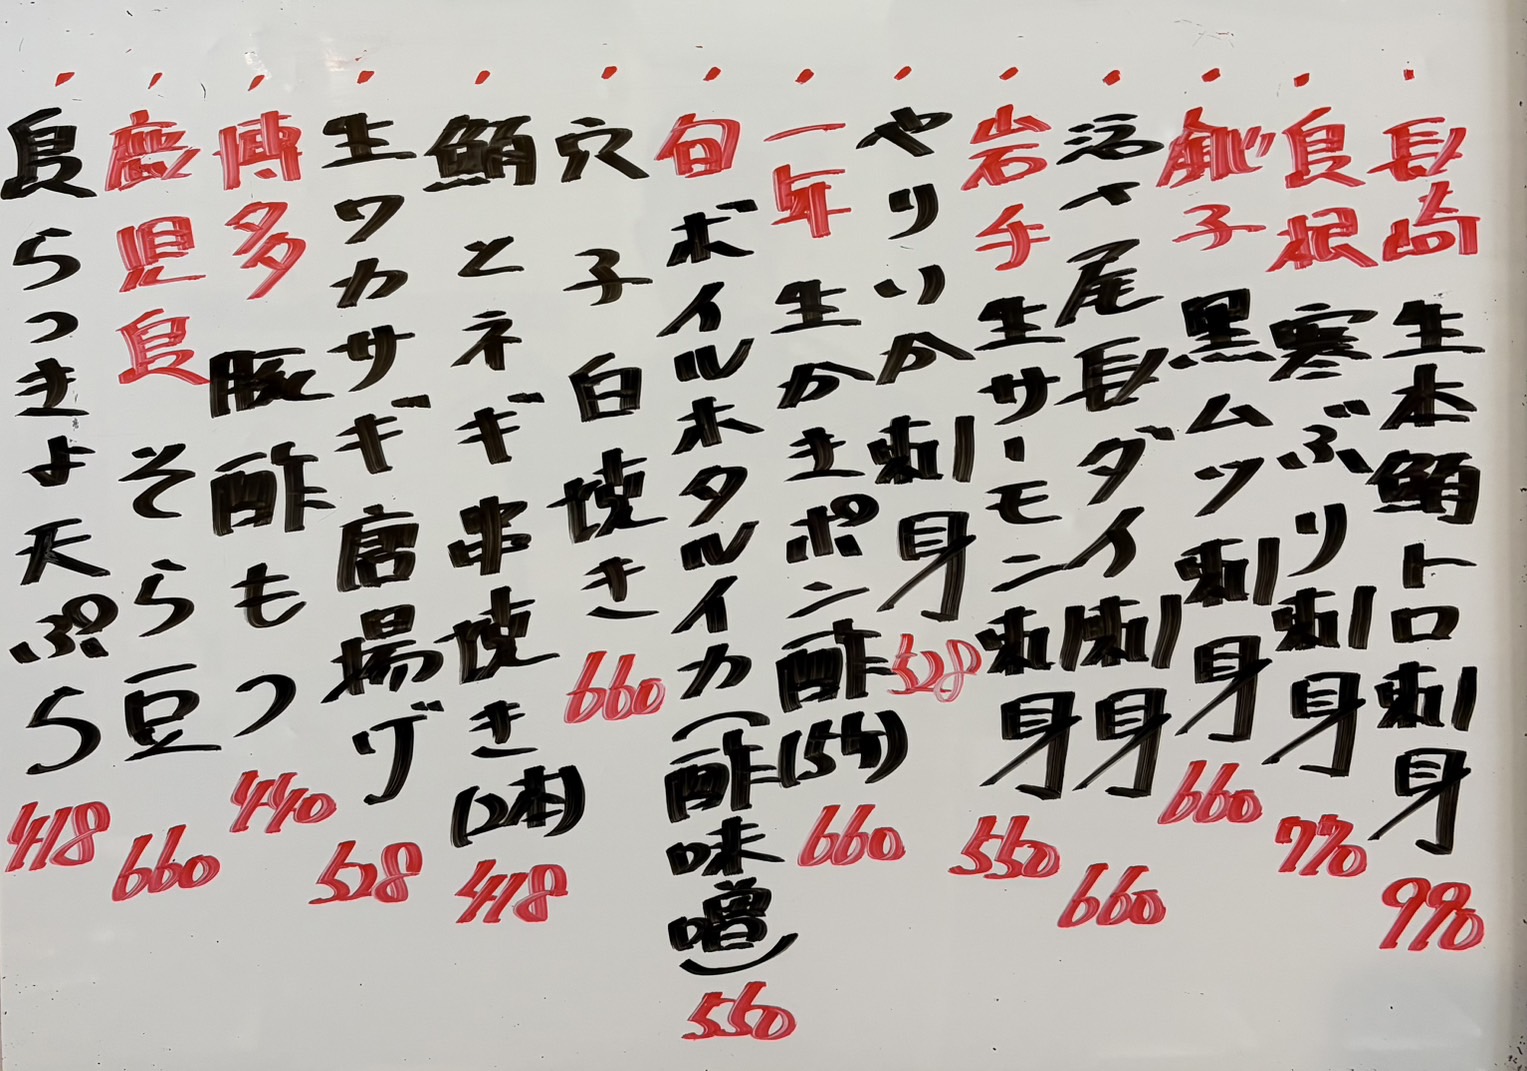 ・長崎 生本鮪トロ刺身 990
・島根 寒ぶり刺身 770
・銚子 黒ムツ刺身 660
・活〆尾長ダイ刺身 660
・岩手 生サーモン刺身 550
・やりいか刺身 528
・一年 生かきポン酢 660
・旬 ボイルホタルイカ(酢味噌) 550
・穴子 白焼き 660
・鮪とネギ串焼き(2本) 418
・生ワカサギ唐揚げ 528
・博多 豚酢もつ 440
・鹿児島 そら豆 660
・島らっきょ天ぷら 418